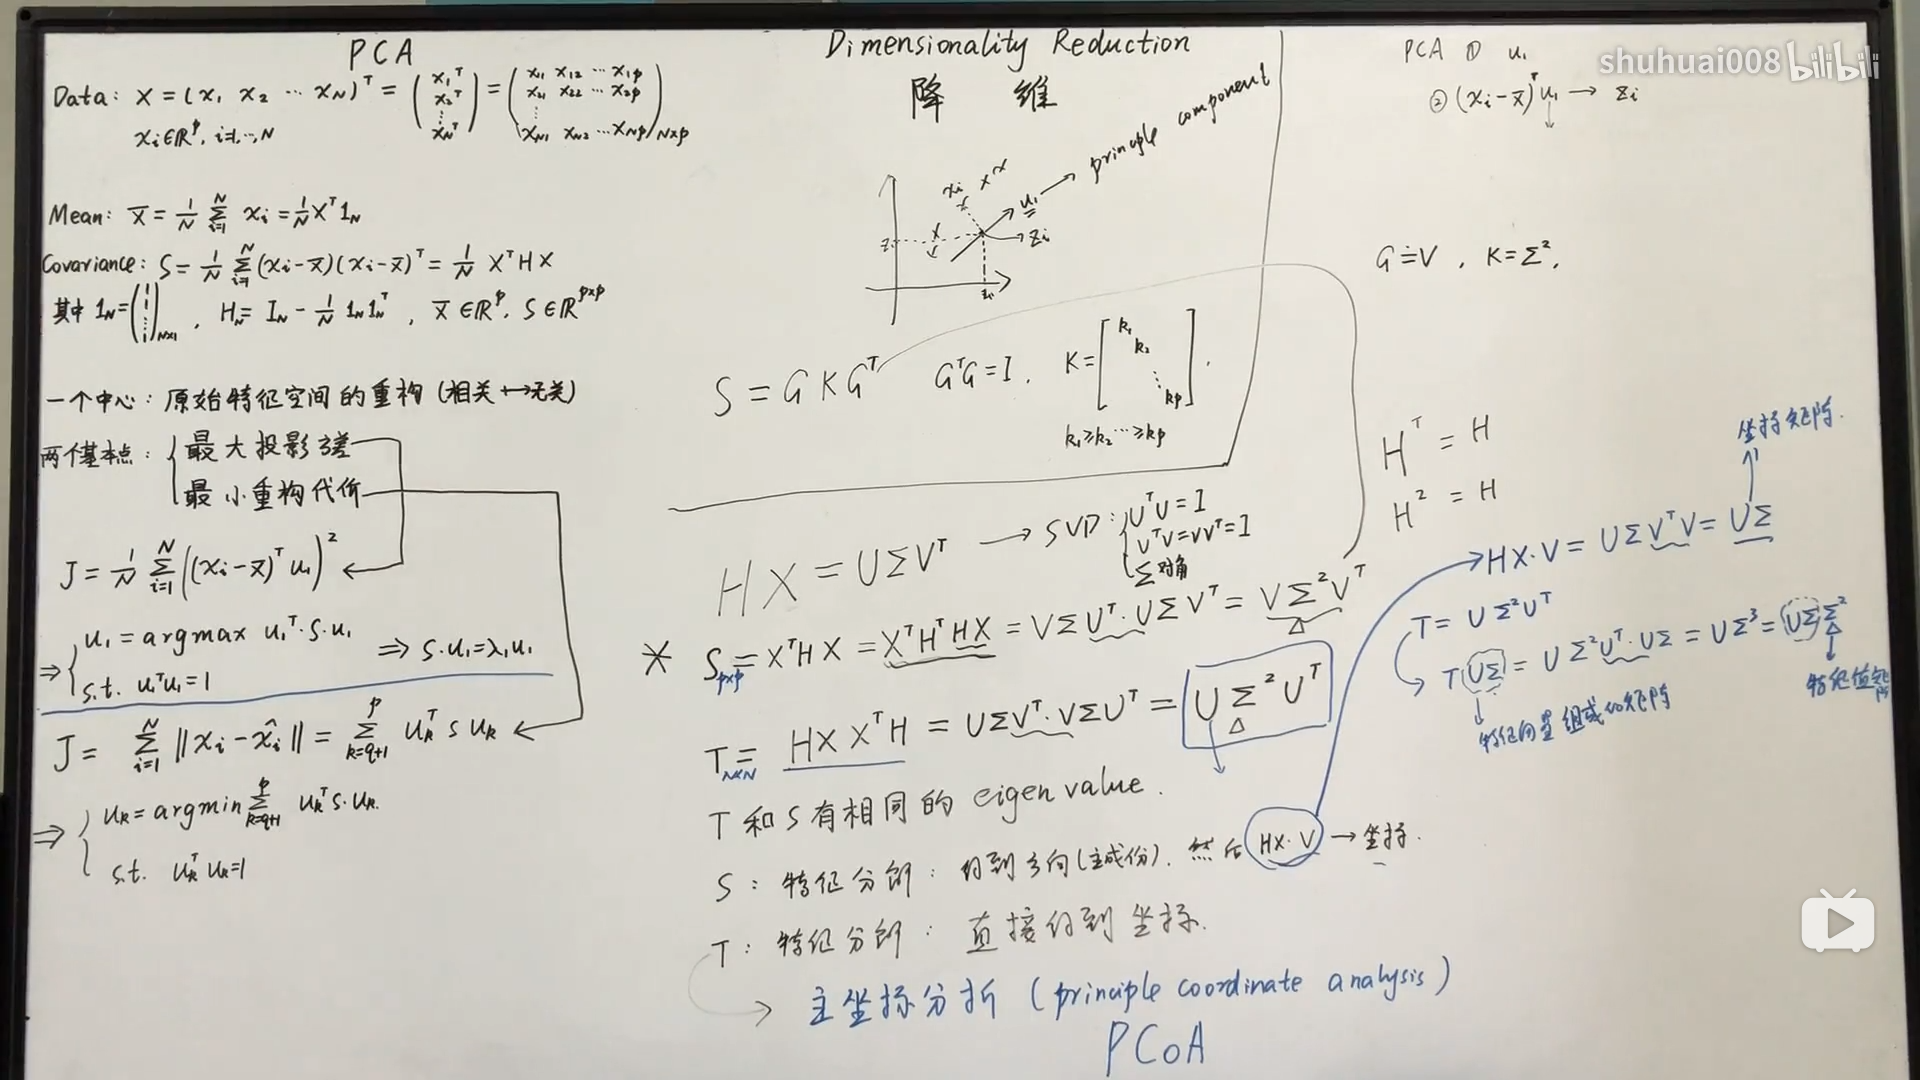 PCA
Data: X = (x₁ x₂ ⋯ x_N)ᵀ = (x₁ᵀ x₂ᵀ ⋮ x_Nᵀ) = (x₁₁ x₁₂ ⋯ x₁p
x₂₁ x₂₂ ⋯ x₂p
⋮
x_N1 x_N2 ⋯ x_Np)_N×p
xᵢ∈ℝᵖ, i=1,⋯,N
Mean: X̄ = 1/N Σ_{i=1}^N xᵢ = 1/N Xᵀ1_N
Covariance: S = 1/N Σ_{i=1}^N (xᵢ-x̄)(xᵢ-x̄)ᵀ = 1/N XᵀHX
其中 1_N = (1 1 ⋮ 1)_N×1 , H_N = I_N - 1/N 1_N 1_Nᵀ , X̄∈ℝᵖ, S∈ℝ^{p×p}
一个中心: 原始特征空间的重构 (相关↔无关)
两个基本点: { 最大投影方差
最小重构代价
J = 1/N Σ_{i=1}^N ((xᵢ-x̄)ᵀu₁)²
⇒ { u₁ = argmax u₁ᵀ·S·u₁
s.t. u₁ᵀu₁=1
⇒ S·u₁=λ₁u₁
J = Σ_{i=1}^N ‖xᵢ-x̂ᵢ‖ = Σ_{k=q+1}^p u_kᵀ S u_k
⇒ { u_k = argmin Σ_{k=q+1}^p u_kᵀ S·u_k
s.t. u_kᵀ u_k=1
Dimensionality Reduction
降 维
principle component
xᵢ
u₁
zᵢ
S = G K Gᵀ GᵀG = I, K = [k₁ k₂ ⋱ kp].
k₁≥k₂⋯≥kp
HX = UΣVᵀ → SVD: { UᵀU = I
VᵀV=VVᵀ=I
Σ 对角
* S_p×p = XᵀHX = XᵀHᵀHX = VΣUᵀ·UΣVᵀ = VΣ²Vᵀ
T_N×N = HXXᵀH = UΣVᵀ·VΣUᵀ = UΣ²Uᵀ
T 和 S 有相同的 eigen value.
S: 特征分解: 得到方向(主成份). 然后 HX·V → 坐标.
T: 特征分解: 直接得到坐标.
主坐标分析 (principle coordinate analysis)
PCoA
PCA ① u₁
② (xᵢ-x̄)ᵀu₁ → zᵢ
shuhuai008 bilibili
G=V, K=Σ²,
Hᵀ = H
H² = H
坐标矩阵.
HX·V = UΣVᵀV = UΣ
T = UΣ²Uᵀ
TUΣ = UΣ²Uᵀ·UΣ = UΣ³ = UΣΣ²
特征向量组成的矩阵
特征值矩阵